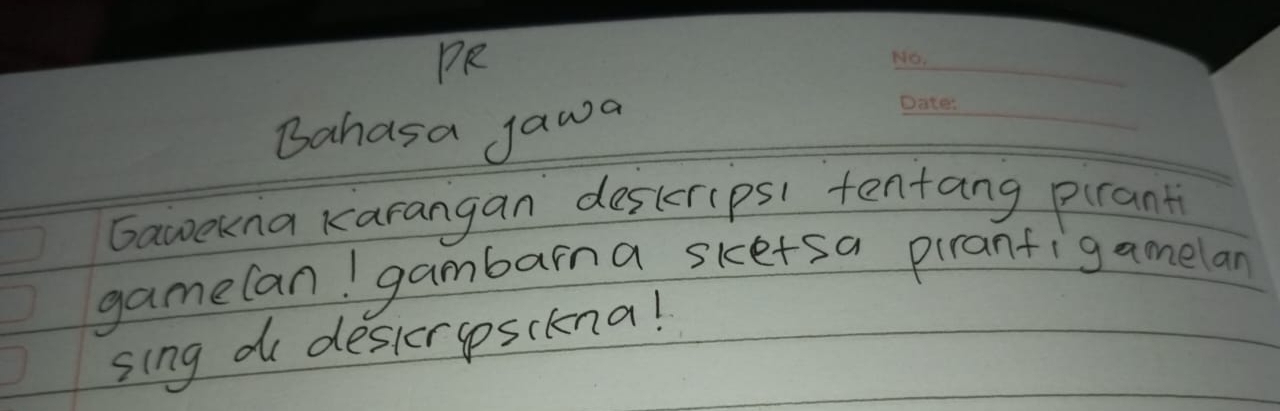 PR
No.
Date:
Bahasa Jawa
Gawekna karangan deskripsi tentang piranti
gamelan! gambarna sketsa piranti gamelan
sing di deskripsikna!